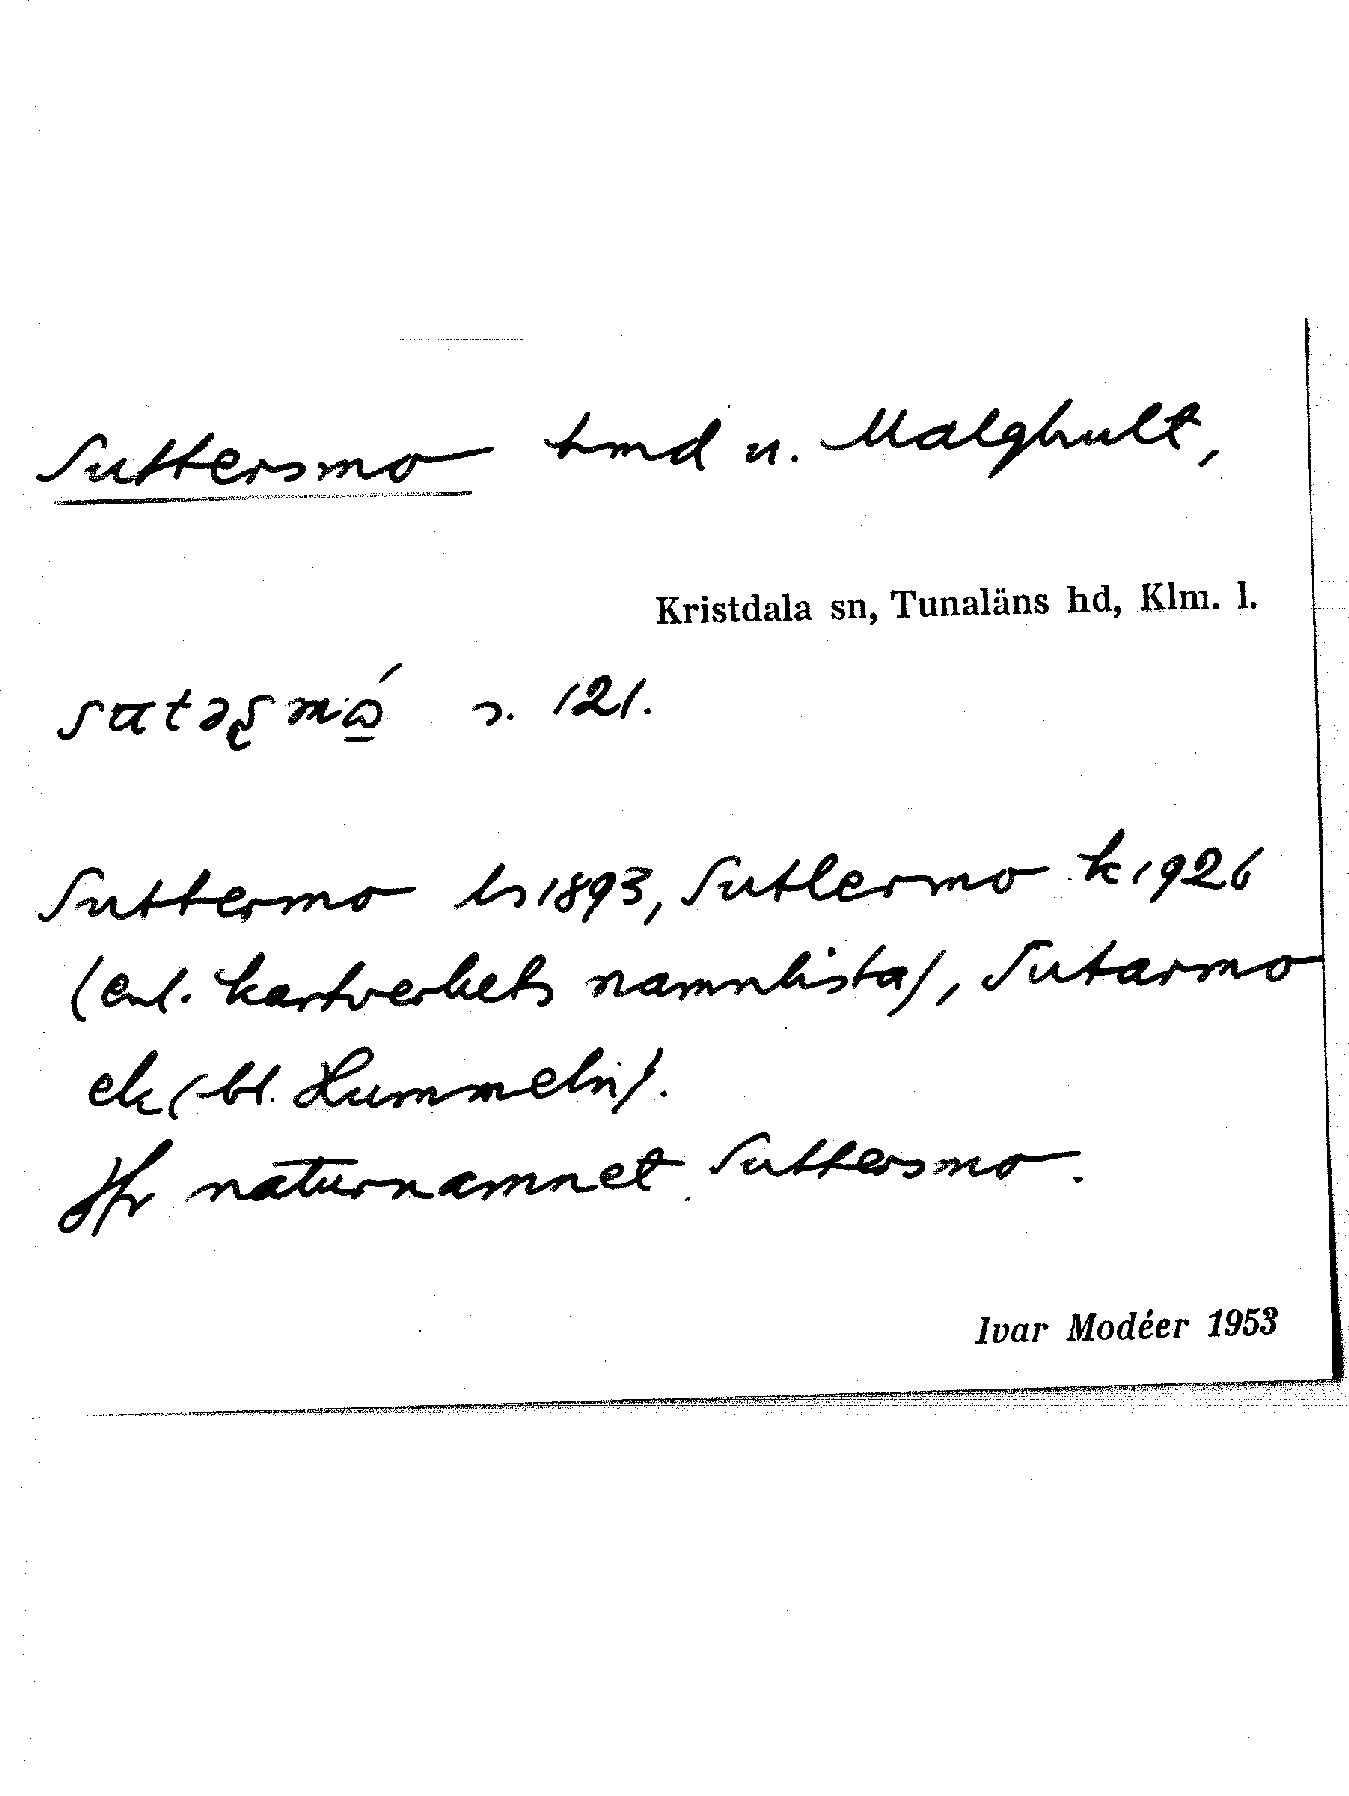 Suttersmo hmd u. Malghult,
Kristdala sn, Tunaläns hd, Klm. l.
s. 121.
Suttermo hs 1893, Sutlermo k 1926
(enl. kartverkets namnlista), Sutarmo
ek (bl. Hummeln).
Jfr naturnamnet Suttersmo.
Ivar Modéer 1953